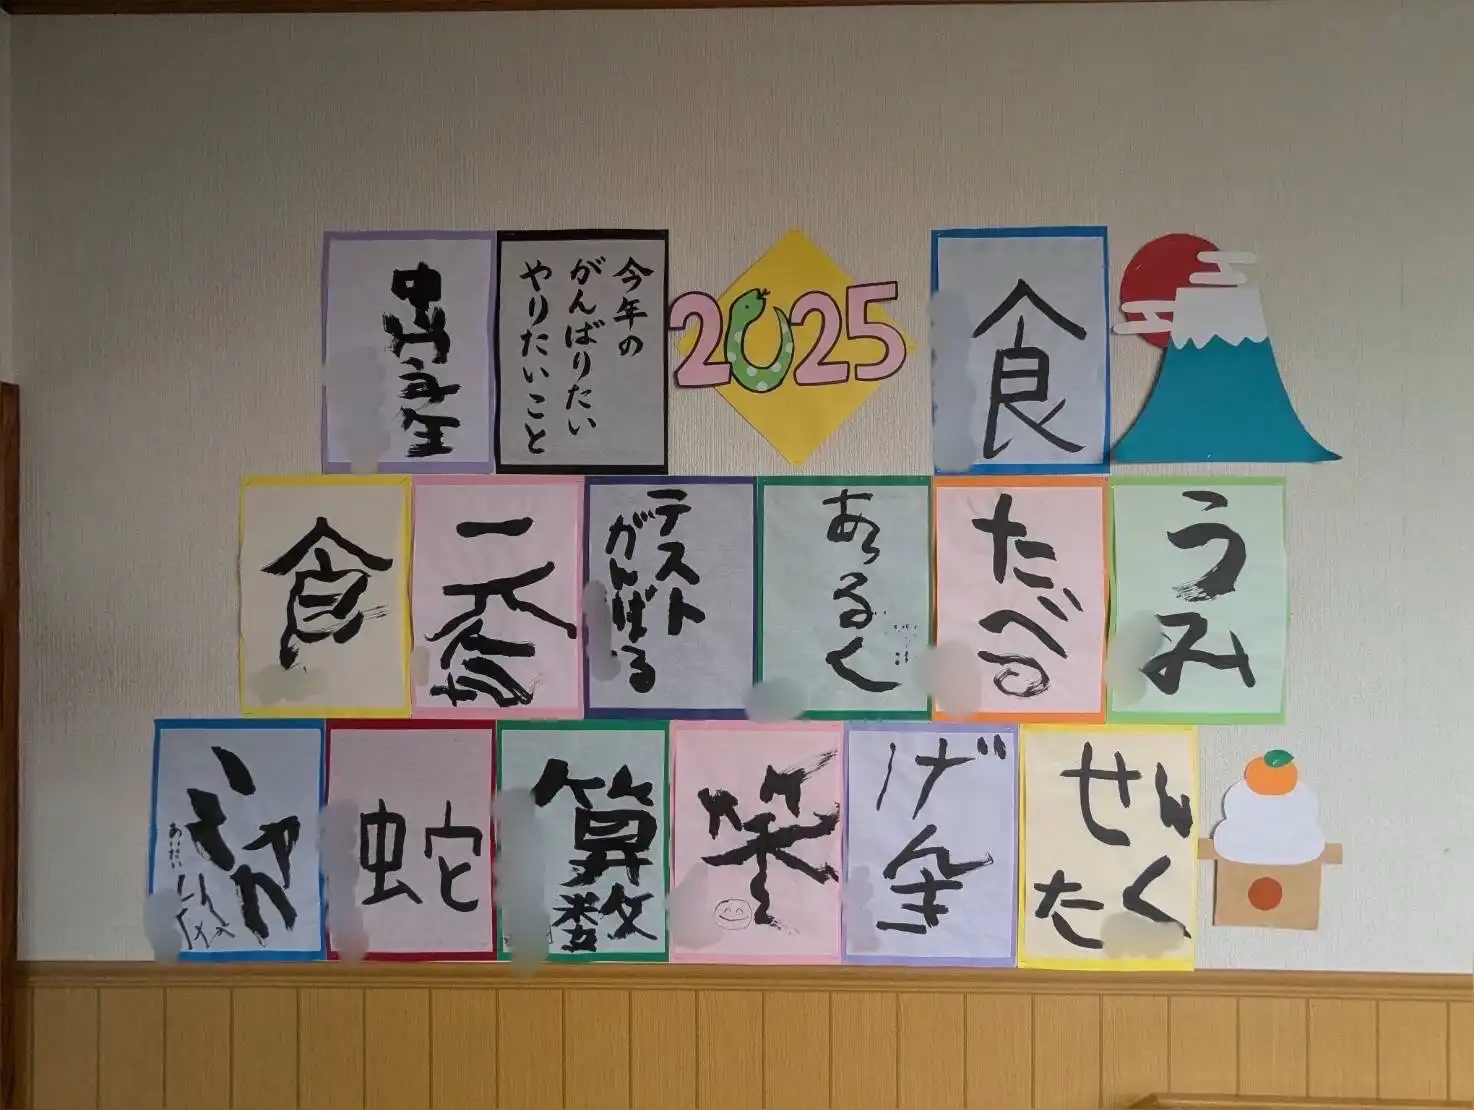 今年の
がんばりたい
やりたいこと
2025
食
食
テスト
がんばる
あるく
たべる
うみ
蛇
算数
笑
げんき
せんたく